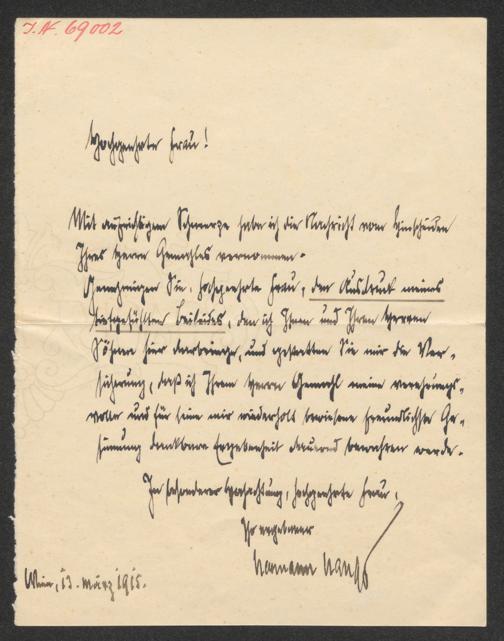 I.N. 69002
Hochgeehrte Frau!
Mit aufrichtigem Schmerze habe ich die Nachricht vom Hinscheiden
Ihres Herrn Gemahles vernommen.
Genehmigen Sie, hochgeehrte Frau, den Ausdruck meines
tiefgefühlten Beileides, den ich Ihnen und Ihren Herren
Söhnen hier darbringe, und gestatten Sie mir die Ver-
sicherung, daß ich Ihrem Herrn Gemahl meine verehrungs-
volle und für seine mir wiederholt bewiesene freundlichste Ge-
sinnung dankbare Ergebenheit dauernd bewahren werde.
In besonderer Hochachtung, hochgeehrte Frau,
Ihr ergebener
Wien, 13. März 1915.